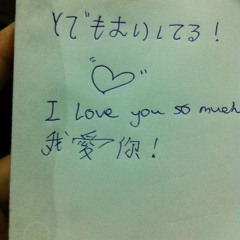 とでもむいしてる!
I love you so much
我愛你!